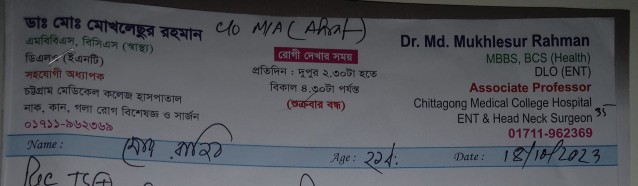 ডাঃ মোঃ মোখলেছুর রহমান C/O M/A (
এমবিবিএস, বিসিএস (স্বাস্থ্য)
ডিএলও (ইএনটি)
সহযোগী অধ্যাপক
চট্টগ্রাম মেডিকেল কলেজ হাসপাতাল
নাক, কান, গলা রোগ বিশেষজ্ঞ ও সার্জন
০১৭১১-৯৬২৩৬৯
রোগী দেখার সময়
প্রতিদিন : দুপুর ২.৩০টা হতে
বিকাল ৪.৩০টা পর্যন্ত
(শুক্রবার বন্ধ)
Dr. Md. Mukhlesur Rahman
MBBS, BCS (Health)
DLO (ENT)
Associate Professor
Chittagong Medical College Hospital
ENT & Head Neck Surgeon 35
01711-962369
Name : Age : Date : 18/10/2023